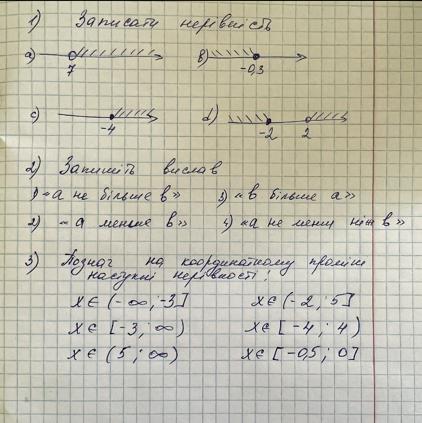 1) Записати нерівність
a) 7 b) -0,3
c) -4 d) -2 2
2) Запишіть вислав
1) «a не більше b» 3) «b більше a»
2) «a меньше b» 4) «a не менш ніж b»
3) Познач на координатному проміні
наступні нерівності:
x∈(-∞;-3] x∈(-2;5]
x∈[-3;∞) x∈[-4;4)
x∈(5;∞) x∈[-0,5;0]